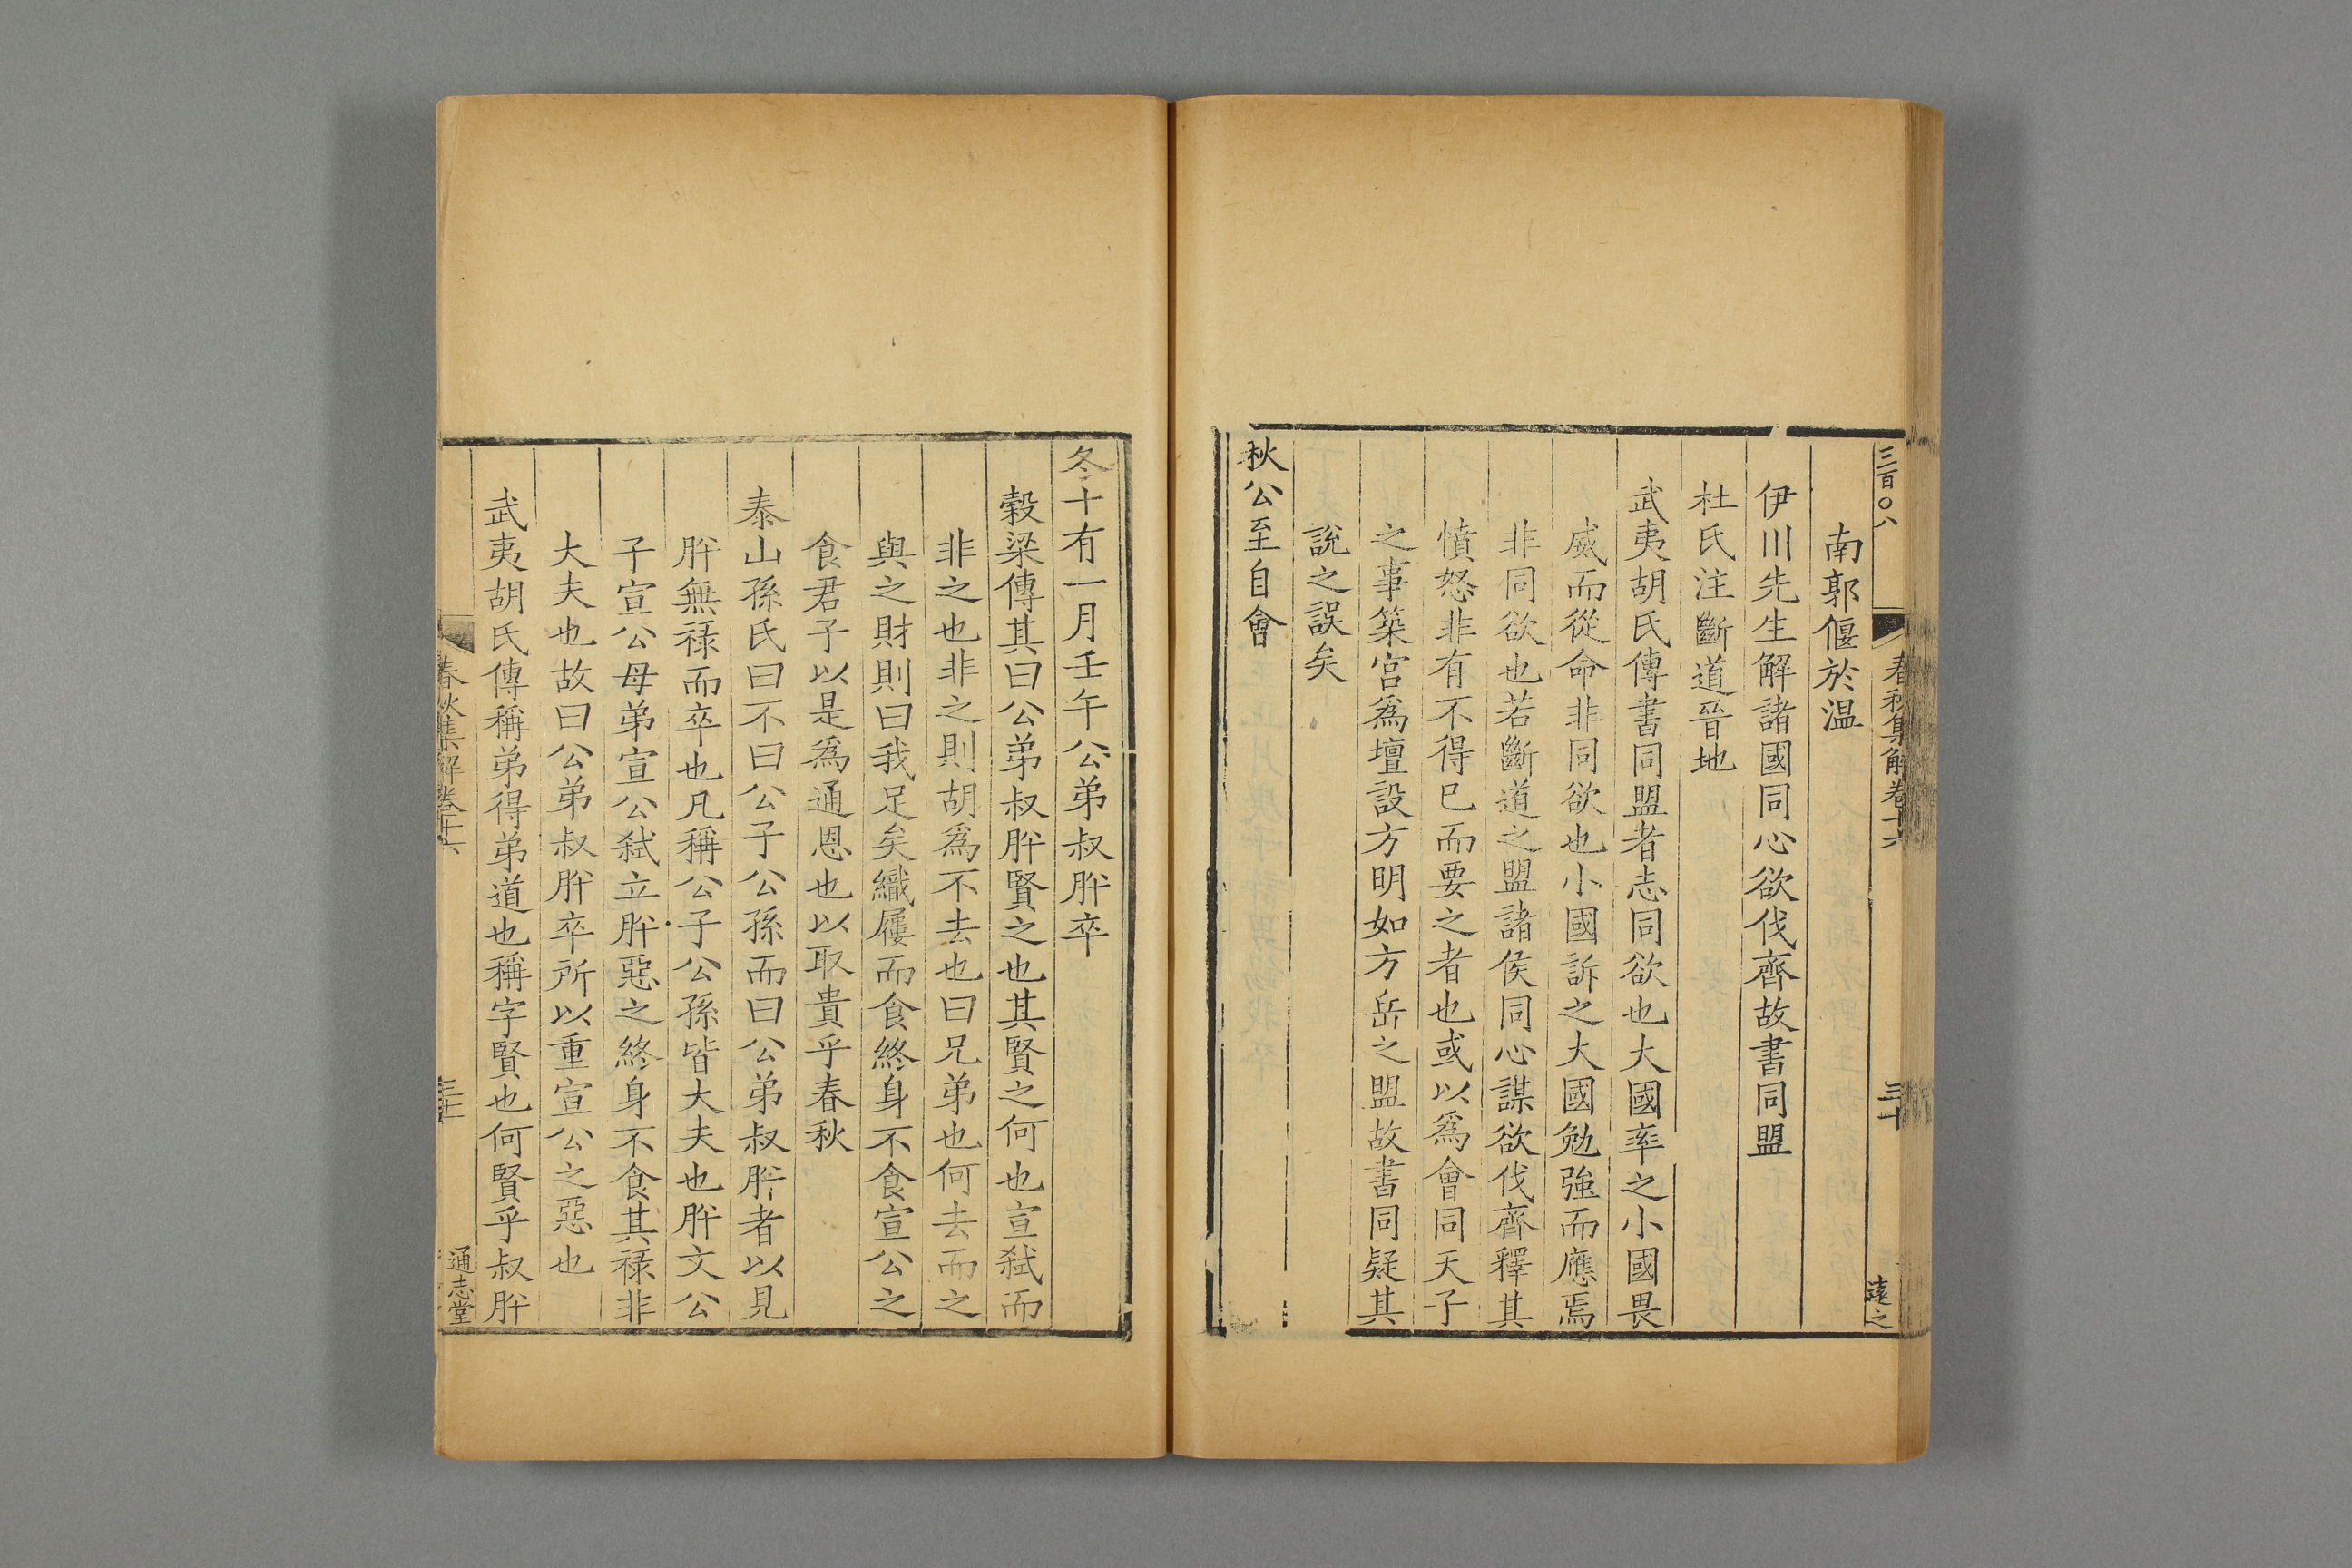 三百〇八
春秋集解卷十六
三十
遠之
南郭偃於溫
伊川先生解諸國同心欲伐齊故書同盟
杜氏注斷道晉地
武夷胡氏傳書同盟者志同欲也大國率之小國畏
威而從命非同欲也小國訴之大國勉強而應焉
非同欲也若斷道之盟諸侯同心謀欲伐齊釋其
憤怒非有不得已而要之者也或以爲會同天子
之事築宮爲壇設方明如方岳之盟故書同疑其
說之誤矣
秋公至自會
冬十有一月壬午公弟叔肸卒
穀梁傳其曰公弟叔肸賢之也其賢之何也宣弒而
非之也非之則胡爲不去也曰兄弟也何去而之
與之財則曰我足矣織屨而食終身不食宣公之
食君子以是爲通恩也以取貴乎春秋
泰山孫氏曰不曰公子公孫而曰公弟叔肸者以見
肸無祿而卒也凡稱公子公孫皆大夫也肸文公
子宣公母弟宣公弒立肸惡之終身不食其祿非
大夫也故曰公弟叔肸卒所以重宣公之惡也
武夷胡氏傳稱弟得弟道也稱字賢也何賢乎叔肸
春秋集解卷十六
三十一
通志堂